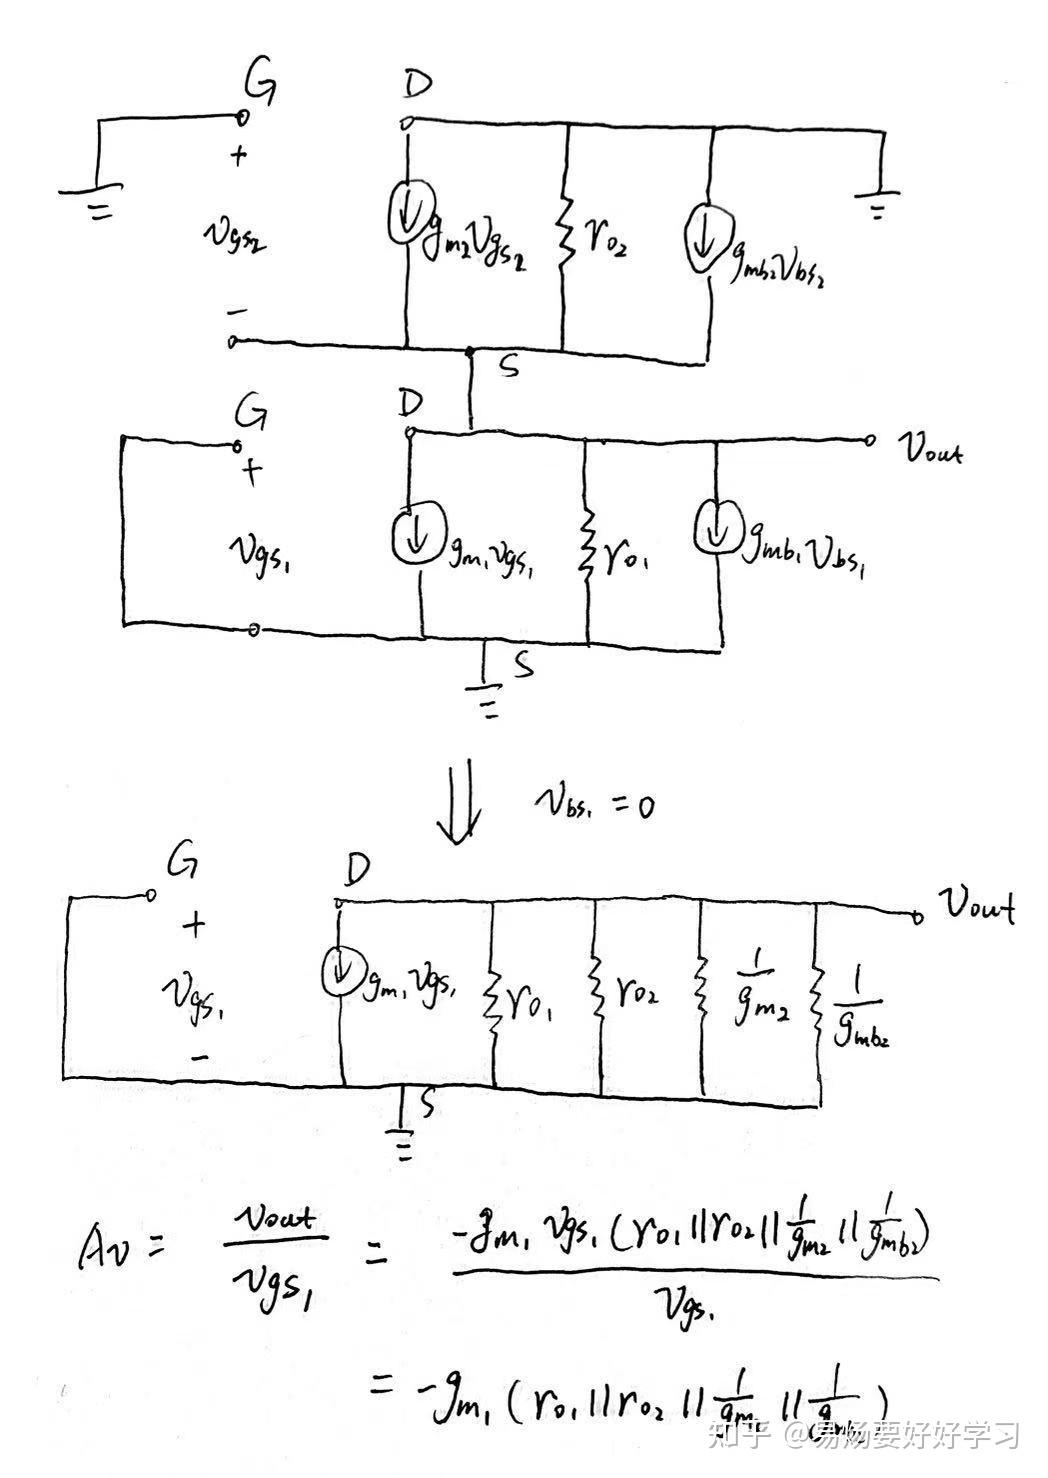 G D
+
vgs₂ gm₂vgs₂ ro₂ gmb₂vbs₂
-
S
G D
vout
+
vgs₁ gm₁vgs₁ ro₁ gmb₁vbs₁
S
⇓ vbs₁ = 0
G D
vout
+
vgs₁ gm₁vgs₁ ro₁ ro₂ 1/gm₂ 1/gmb₂
-
S
Av = vout/vgs₁ = -gm₁vgs₁(ro₁||ro₂||1/gm₂||1/gmb₂)/vgs₁
= -gm₁(ro₁||ro₂||1/gm₂||1/gmb₂)
知乎 @易炀要好好学习